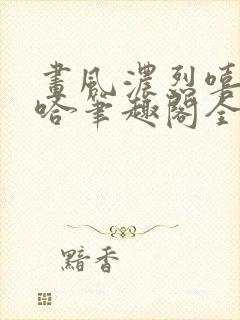 畫風濃烈嘻
哈筆趣閣全
黯香